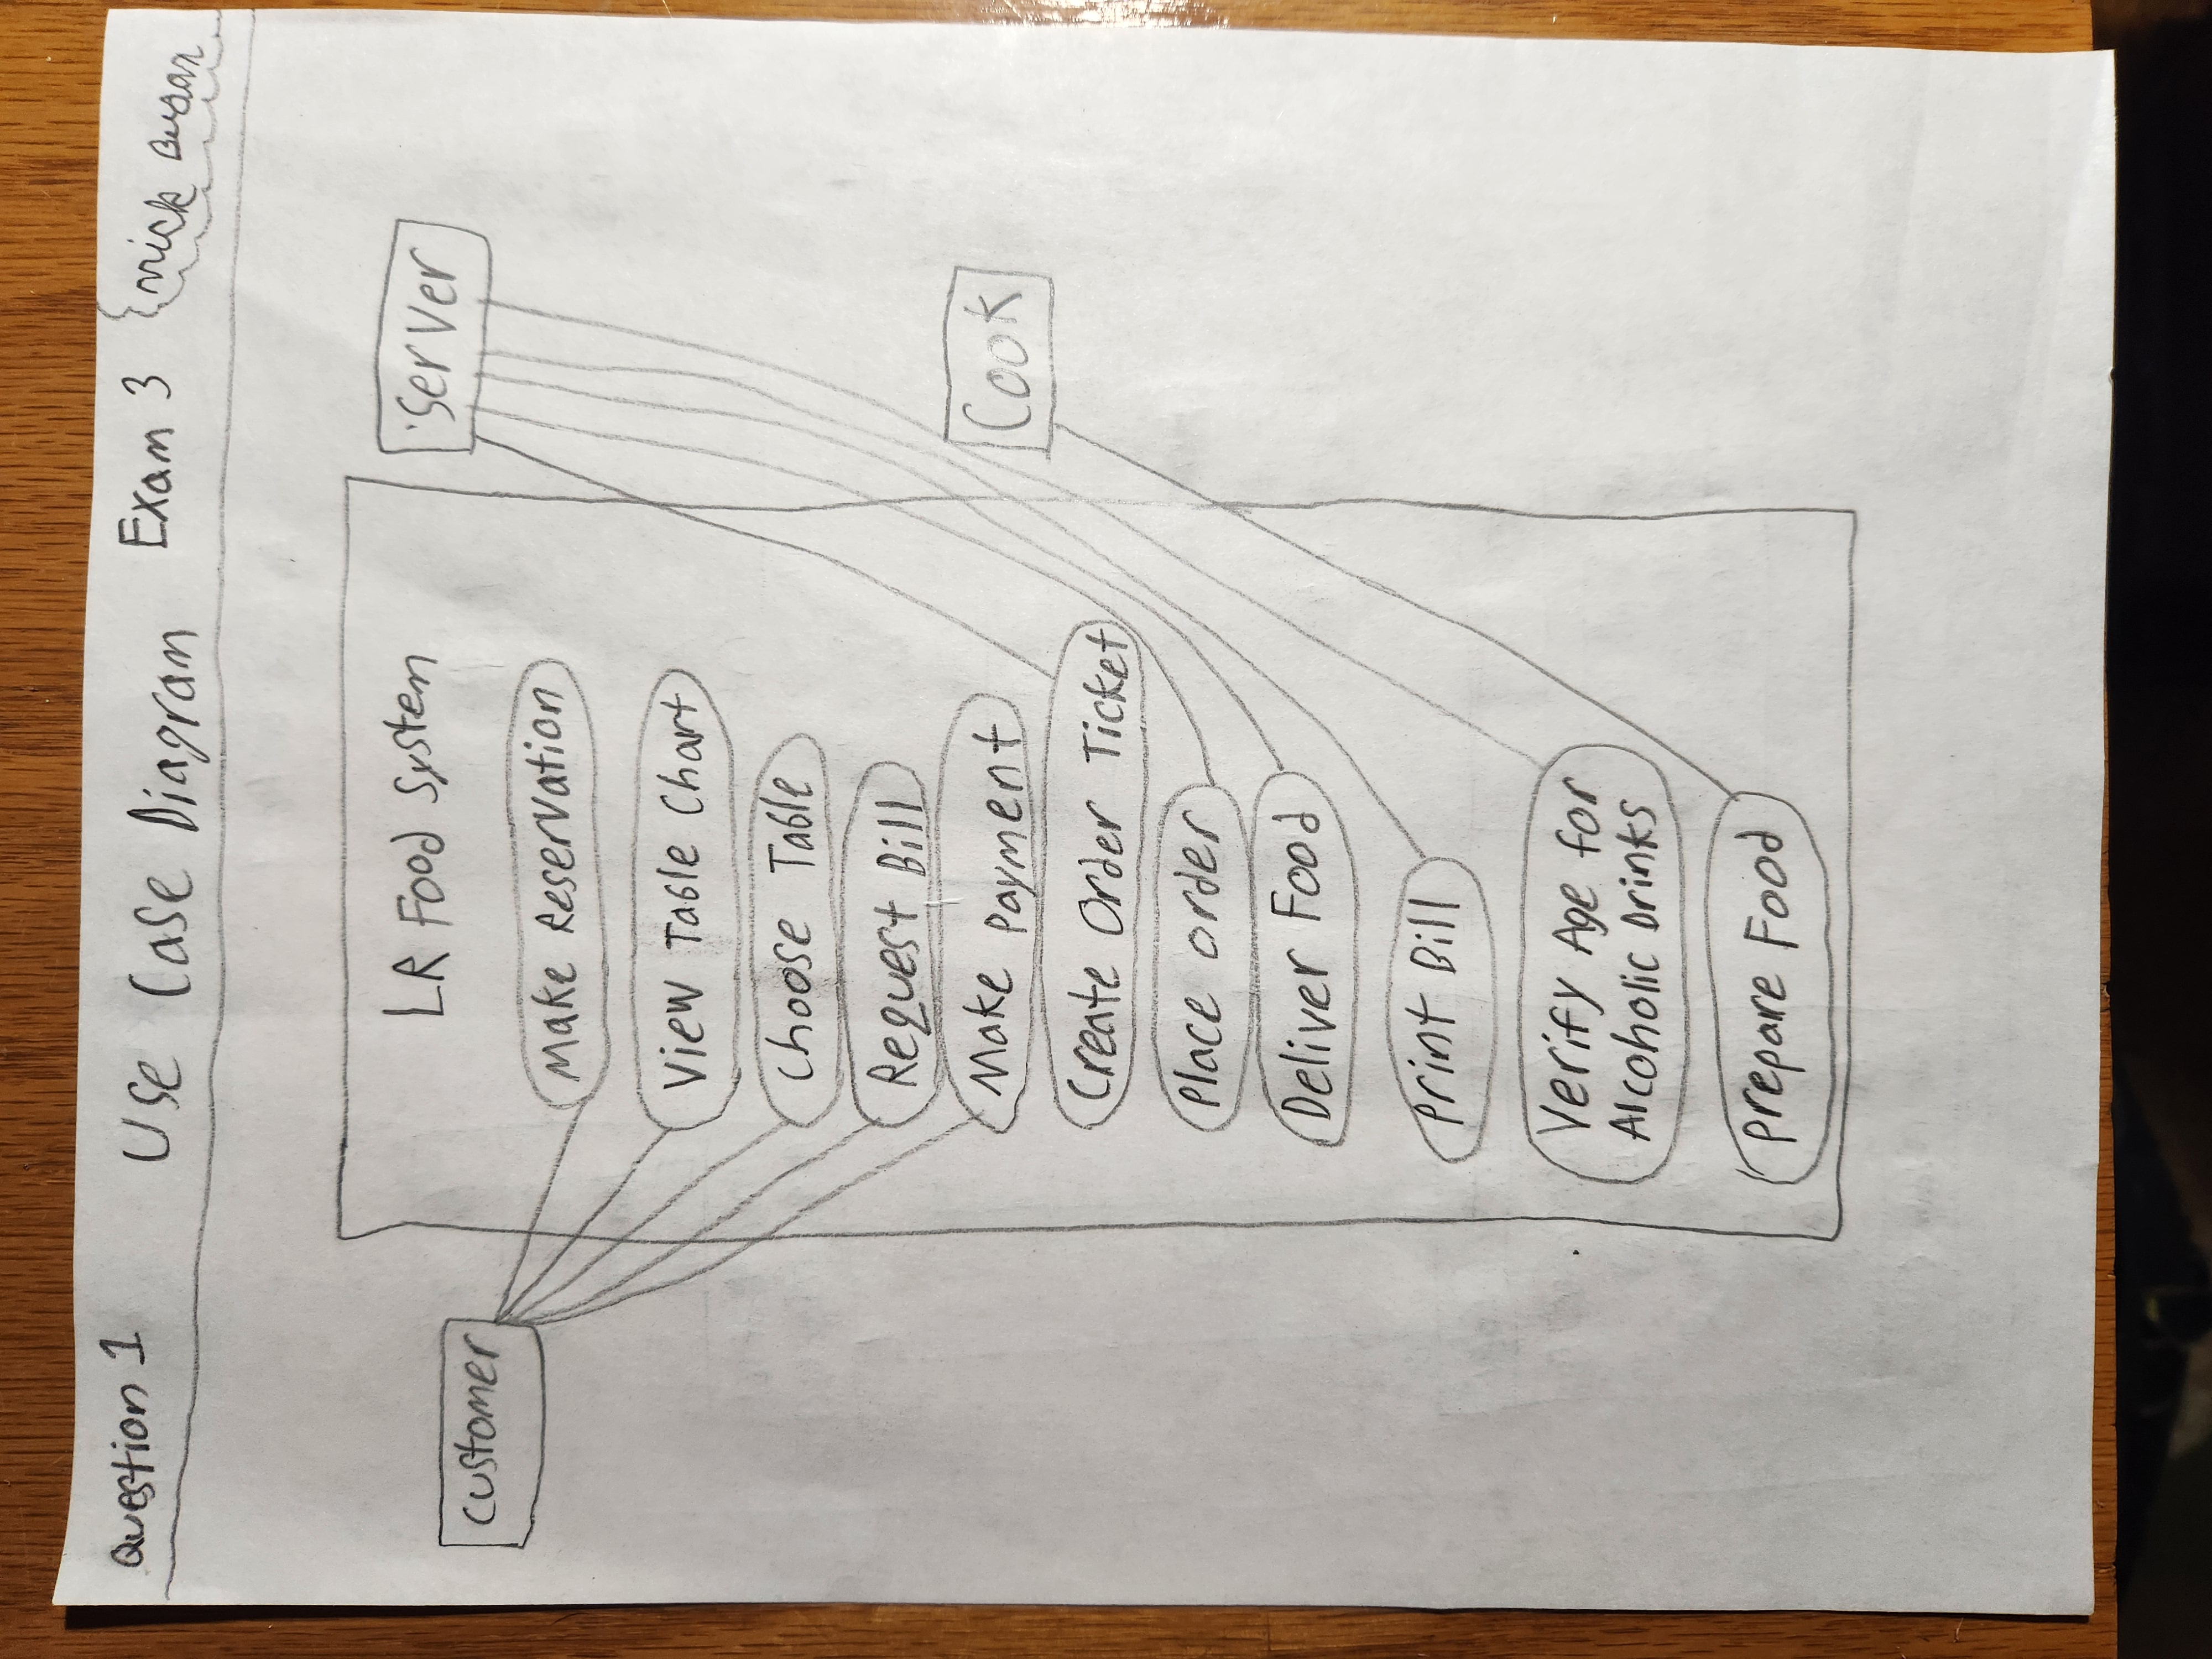 Question 1
Use Case Diagram
Exam 3
LR Food System
Server
Customer
Make Reservation
View Table Chart
Choose Table
Request Bill
Make Payment
Cook
Create Order Ticket
Place order
Deliver Food
Print Bill
Verify Age for
Alcoholic Drinks
Prepare Food